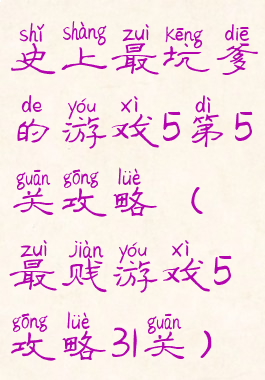 shǐ shàng zuì kēng diē
史上最坑爹
de yóu xì dì
的游戏5第5
guān gōng lüè
关攻略（
zuì jiàn yóu xì
最贱游戏5
gōng lüè guān
攻略31关）